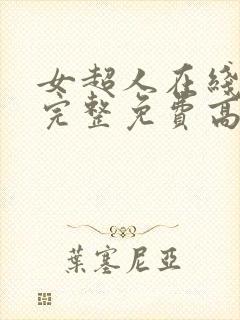 女超人在綫
完整免費高
葉塞尼亞